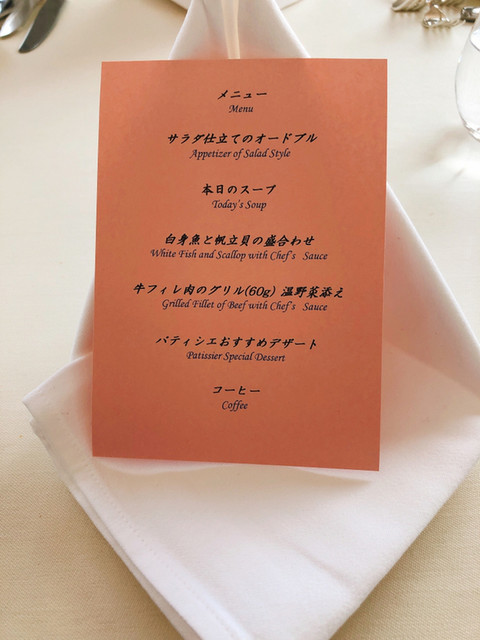 メニュー
Menu
サラダ仕立てのオードブル
Appetizer of Salad Style
本日のスープ
Today's Soup
白身魚と帆立貝の盛合わせ
White Fish and Scallop with Chef's Sauce
牛フィレ肉のグリル(60g) 温野菜添え
Grilled Fillet of Beef with Chef's Sauce
パティシエおすすめデザート
Patissier Special Dessert
コーヒー
Coffee